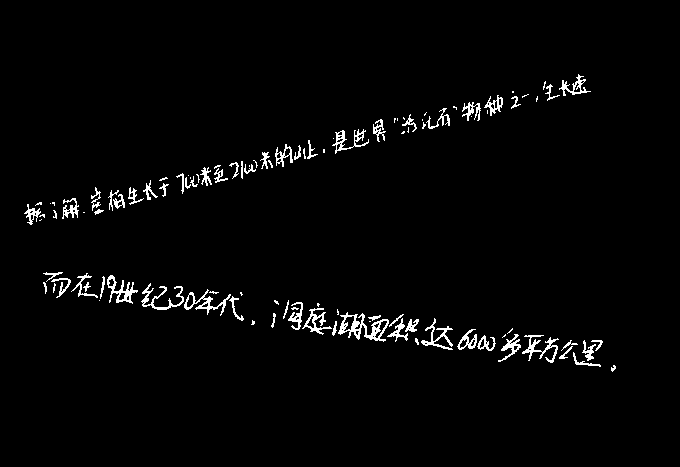 据了解,崖柏生长于700米至2100米的山上,是世界“活化石”物种之一,生长速
而在19世纪30年代,洞庭湖面积达6000多平方公里.